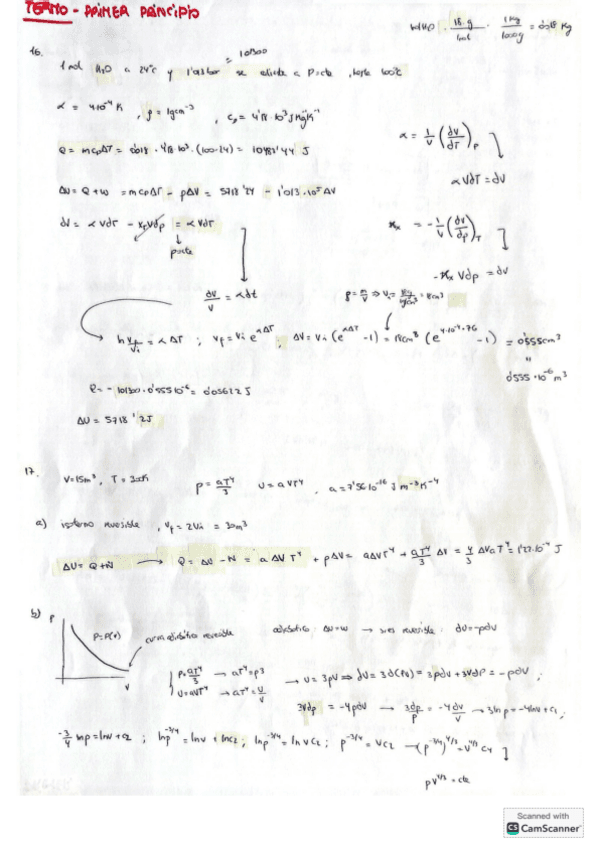 TERMO - PRIMER PRINCIPIO
16.
1 mol H₂O a 24ºC y 1'atbar = 10¹300 se calienta a P=cte, hasta 100ºC
mH₂O · 18 g / 1 mol · 1 Kg / 1000g = 0'018 Kg
α = 4·10⁻⁴ K , ρ = 1gcm⁻³ , cp = 4'18·10³ J Kg⁻¹K⁻¹
Q = mcpΔT = 0'018 · 4'18·10³ · (100-24) =
ΔU = Q+W = mcpΔT - pΔV = 5718'24 - 1'013·10⁵ ΔV
dV = αVdT - χTVdp = αVdT
p=cte
α = 1/V (∂V/∂T)p
αVdT = dV
= -1/V (∂V/∂p)T
Vdp = dV
dV/V = αdt
ρ = m/V ⇒ Vi = = 18cm³
ln Vf/Vi = αΔT ; Vf = Vi e^αΔT ; ΔV = Vi (e^αΔT - 1) = 18cm³ (e^4·10⁻⁴·76 - 1) = 0'555cm³
0'555·10⁻⁶ m³
= - 101300 · 0'555·10⁻⁶ = 0'05622 J
ΔU = 5718'2J
17.
V=15m³, T = 300K p = aT⁴/3 U = aVT⁴ , a = 7'56·10⁻¹⁶ J m⁻³K⁻⁴
a) isotermo reversible , Vf = 2Vi = 30m³
ΔU = Q+W → Q = ΔU - W = aΔVT⁴ + pΔV = aΔVT⁴ + aT⁴/3 ΔV = 4/3 ΔVaT⁴ = 1'22·10⁻⁴ J
b)
P
P=P(V)
curva adiabática reversible
V
adiabático: ΔU=W → reversible: dU=-pdV
p=aT⁴/3 → aT⁴=p3
U=aVT⁴ → aT⁴=U/V
→ U = 3pV ⇒ dU = 3d(pV) = 3pdV + 3Vdp = -pdV ;
3Vdp = -4pdV → 3dp/p = -4dV/V → 3lnp = -4lnV + C₁ ;
-3/4 lnp = lnV + C₂ ; lnp^-3/4 = lnV + lnC₂ ; lnp^-3/4 = lnVC₂ ; p^-3/4 = VC₂ → (p^-3/4)^4/3 = V^4/3 C₄
pV^4/3 = cte
Scanned with
CS CamScanner